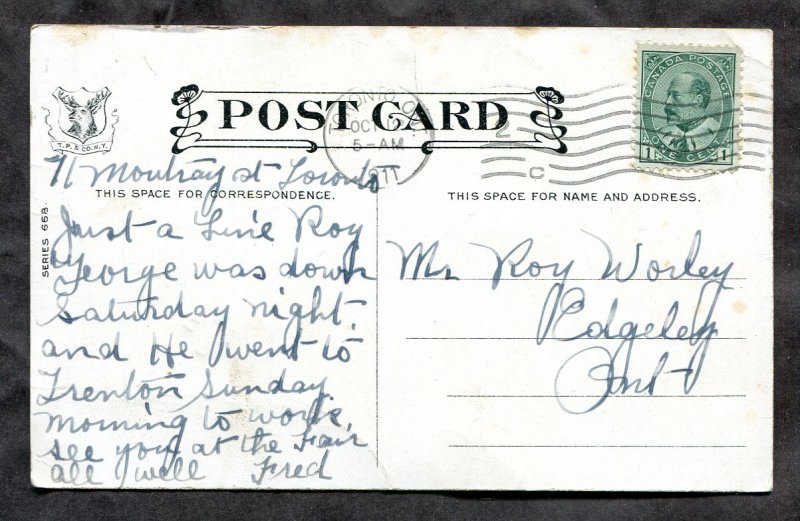 POST CARD
T. P. & CO. N.Y.
TORONTO ONT
OCT 2
5-AM
1911
2
C
CANADA POSTAGE
1 ONE CENT 1
THIS SPACE FOR CORRESPONDENCE.
THIS SPACE FOR NAME AND ADDRESS.
SERIES 668.
71 st Toronto
Just a Line Roy
George was down
Saturday night.
and He went to
Trenton Sunday.
morning to work.
see you at the Fair
all well Fred
Mr Roy Worley
Edgeley
Ont